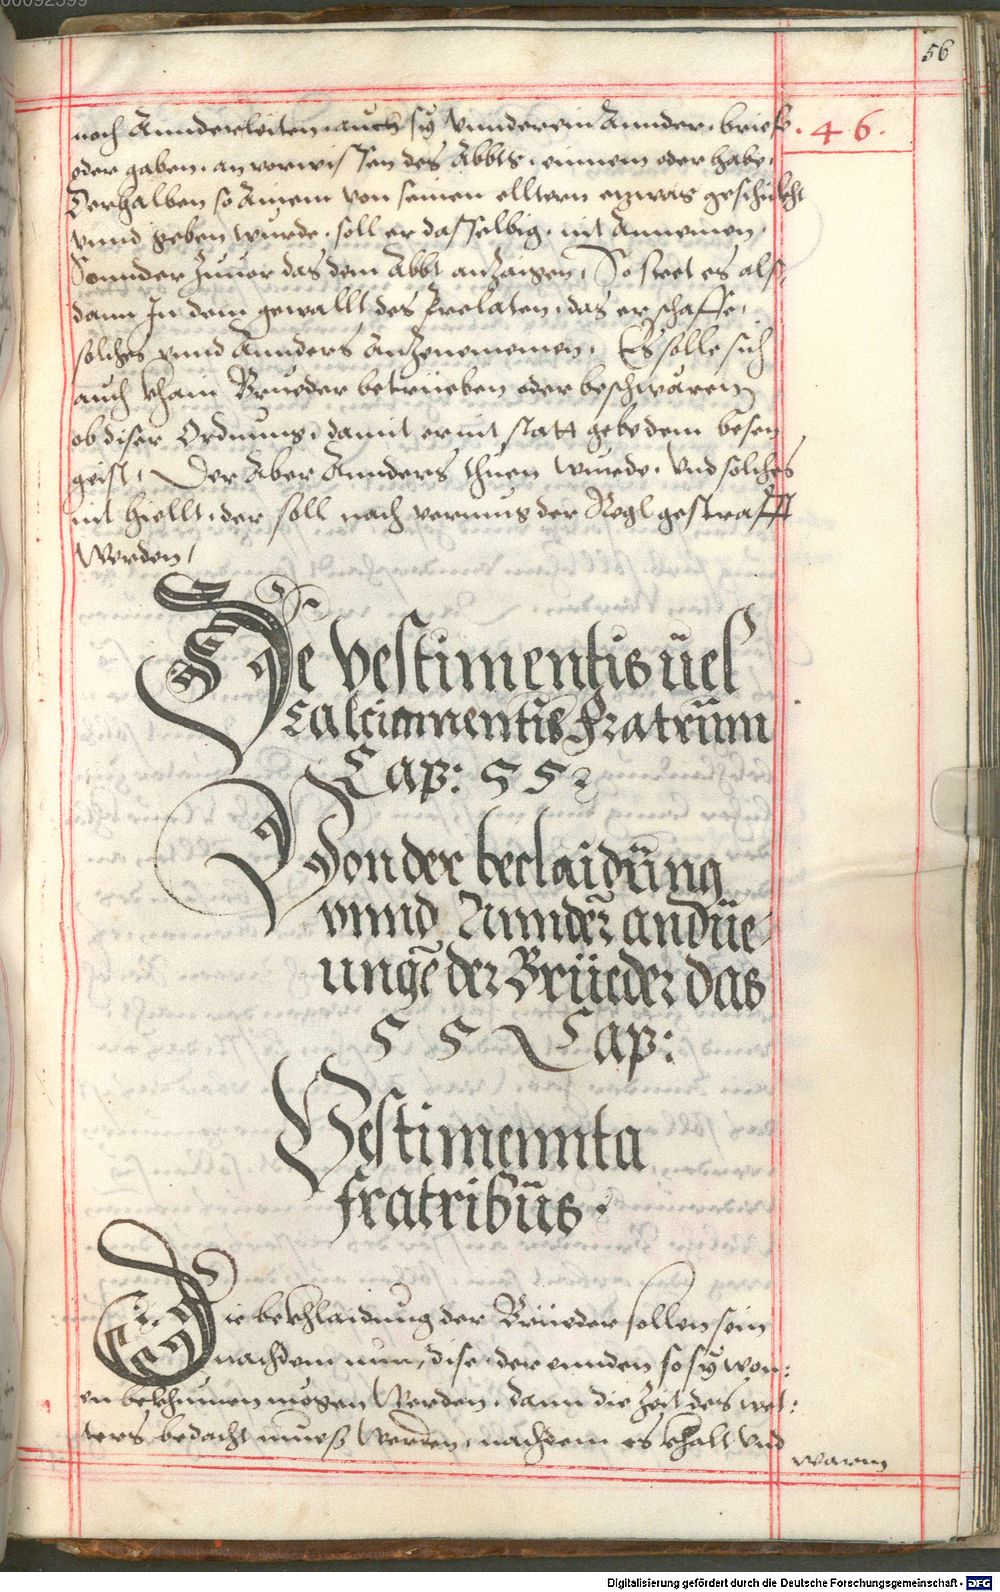 00092599
56
46.
noch Annderleiten. auch sy vnnder ein Annder. briefe
oder gaben. an vorwissen des Abbts. einnem oder habe.
Derhalben so Ainem von seinen elltern etwas geschickht
vnnd geben wurde. soll er dasselbig. nit Annemen.
Sonnder zuuor das dem Abbt anzaigen. So steet es als
dann In dem gewallt des Prelaten. das er schaffe.
solches vnnd Annders Anzenemenen. Es solle sich
auch khain Brueder betrüeben oder beschwären
ob diser Ordnung. damit er nit statt gebe dem bösen
geist. Der Aber Annders thuen wurde. vnd solches
nit hiellt. der soll nach vermug der Regl gestrafft
werden/
De Vestimentis uel
calciamentis Fratrum
Cap: 55
Von der beclaidung
vnnd Annder andue-
unge der Brüeder das
55 Cap:
Vestimennta
fratribus.
Die bekhlaidung der Brüeder sollen sein
nachdem nun, dise der ennden so sy won:
en bekhumen mögen Werden. dann die Zeit des wet:
ters bedacht mueß Werden, nachdem es khalt vnd
warm
Digitalisierung gefördert durch die Deutsche Forschungsgemeinschaft - DFG